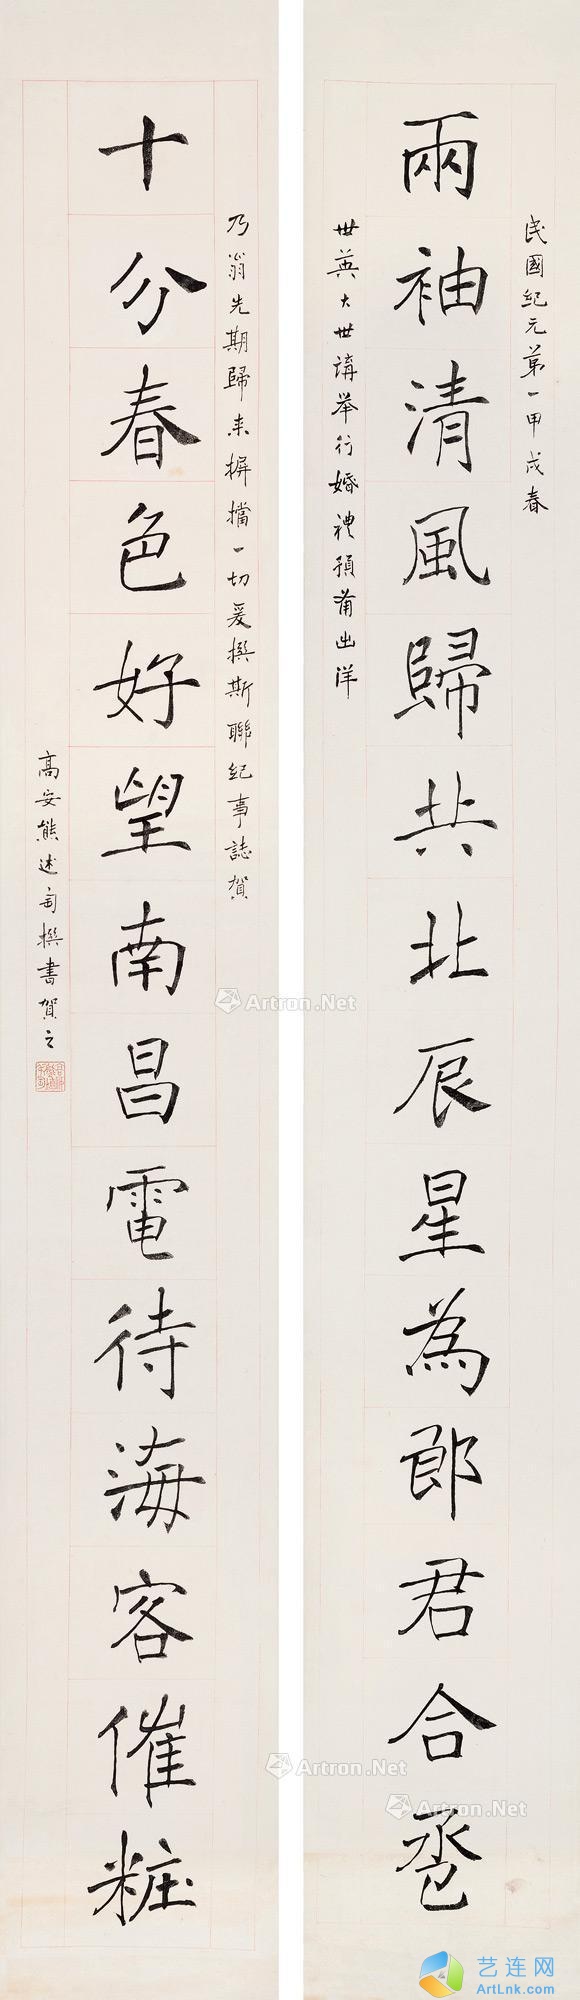 民國紀元第一甲戌春
兩袖清風歸共北辰星為郎君合巹
世英大世講举行婚礼預備出洋
乃翁先期歸来摒擋一切爰撰斯聯紀事誌賀
十分春色好望南昌電待海客催粧
高安熊述匋撰書賀之
Artron.Net
Artron.Net
Artron.Net
Artron.Net
艺连网
ArtLnk.com